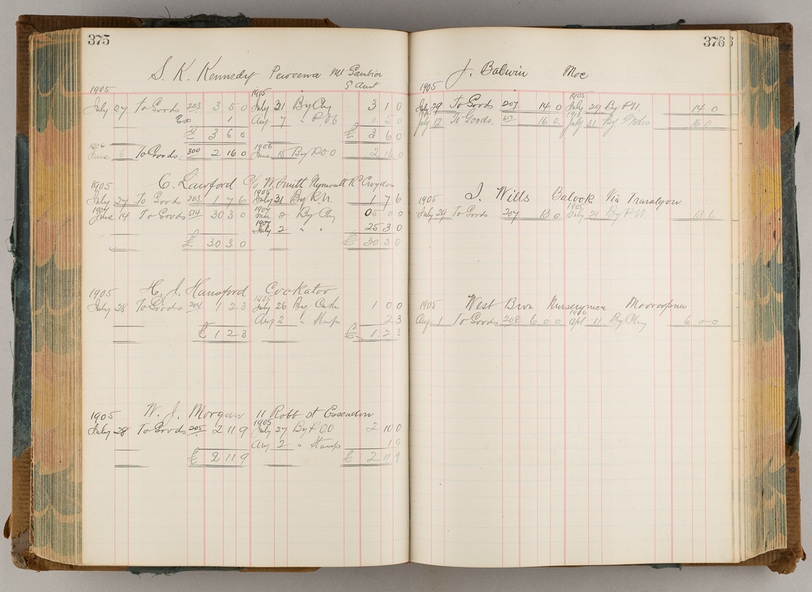 375
S. K. Kennedy Mt Gambier
S Aust
1905 1905
July 27 To Goods 203 3 5 0 July 31 By Chq 3 1 0
Ex 1 Aug 7 " P.O.O 5 0
£ 3 6 0 £ 3 6 0
1906 1906
June To Goods 300 2 16 0 June 15 By P.O.O 2 16 0
1905 C. Lawford C/o W. Plymouth Rd Croydon
1905
July 27 To Goods 203 1 7 6 July 31 By P.N. 1 7 6
1907 1907
June 14 To Goods 30 3 0 By Chq 5 0 0
1907
July 2 " " 25 3 0
£ 30 3 0 £ 30 3 0
1905 H. J. Hansford Cockatoo
1905
July 28 To Goods 204 1 2 3 July 26 By Cash 1 0 0
Aug 2 " Stamps 2 3
£ 1 2 3 £ 1 2 3
1905 W. J. Morgan 11 Robb St Essendon
1905
July 28 To Goods 205 2 11 9 July 27 By P.O.O 2 10 0
Aug 2 " Stamps 1 9
£ 2 11 9 £ 2 11 9
376
J. Baldwin Moe
1905 1905
July 29 To Goods 207 14 0 July 29 By P.N. 14 0
July 17 To Goods 16 0 July 21 By 16 0
1905 J. Wills Balook Via Traralgon
1905
July 29 To Goods 207 13 6 July 29 By P.N. 13 6
1905 West Bros Nurserymen Mooroopna
1906
Aug 1 To Goods 208 6 0 0 Apl 11 By Chq 6 0 0